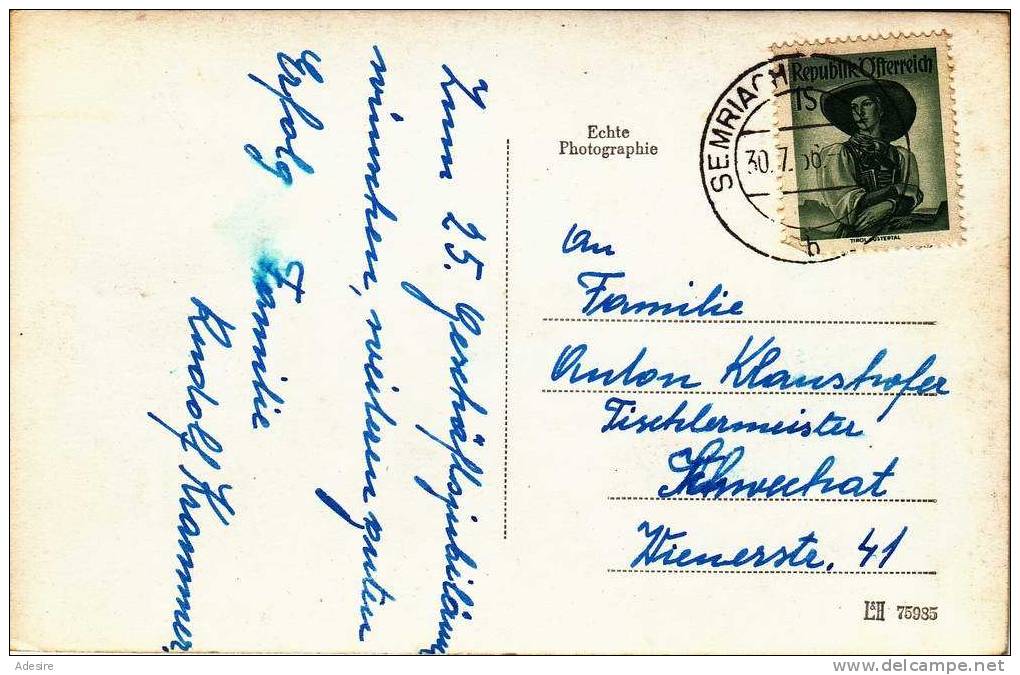 Zum 25. Geschäftsjubiläum
wünschen, weiteren guten
Erfolg
Familie
Rudolf Krammer
Echte
Photographie
SEMRIACH
30.7.56
b
Republik Österreich
1S
TIROL PUSTERTAL
An
Familie
Anton Klaushofer
Tischlermeister
Schwechat
Wienerstr. 41
L&H 75985
Adesire
http://www.delcampe.net